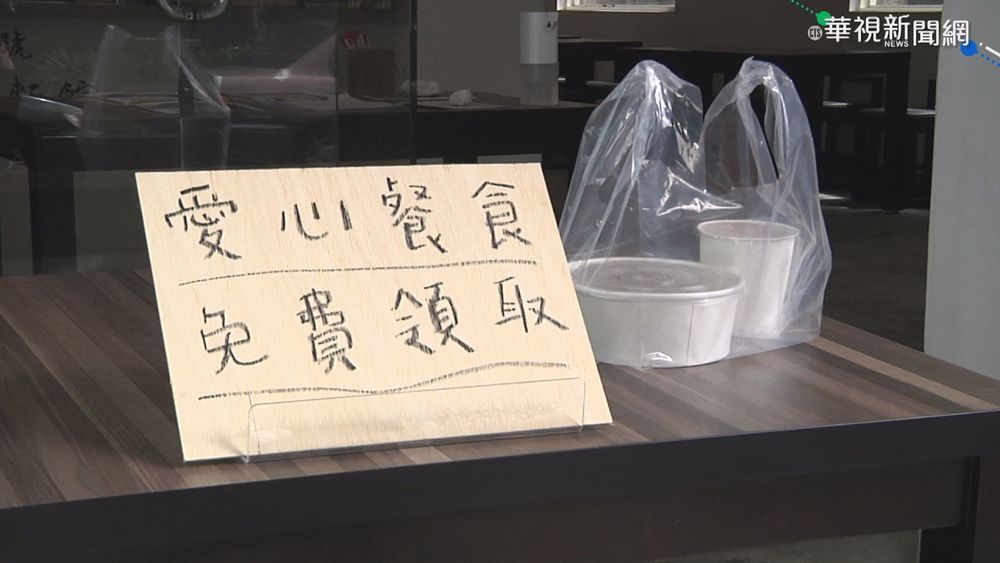 CTS
NEWS
華視新聞網
號
愛心餐食
免費領取